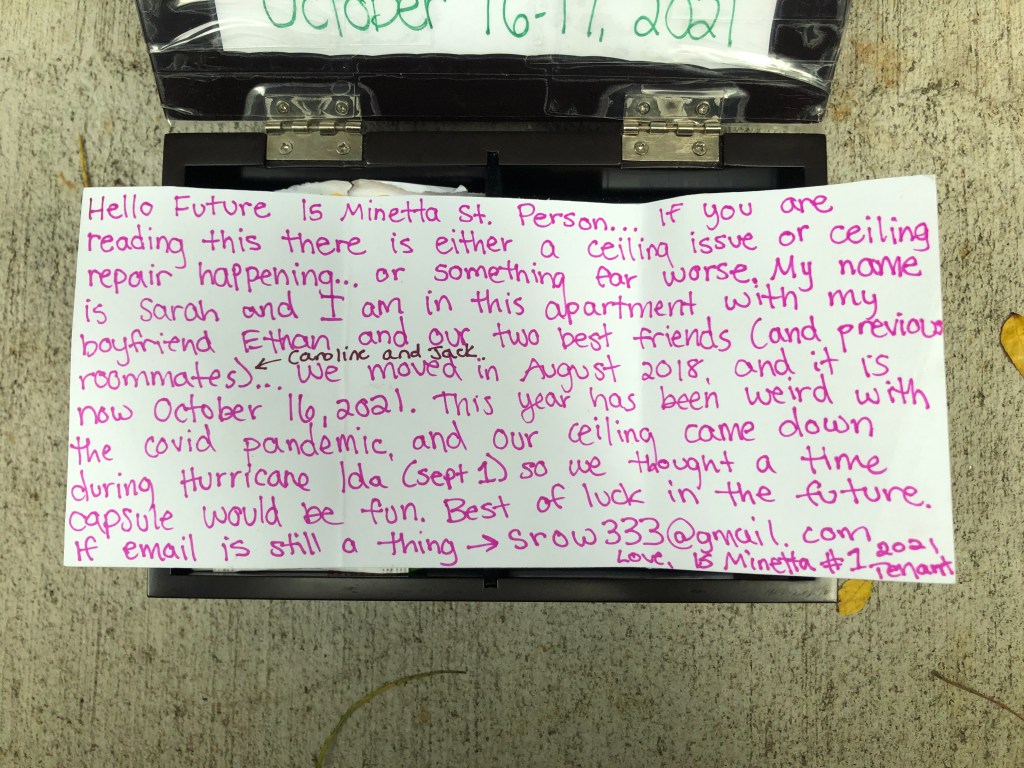 October 16-17, 2021
Hello Future 15 Minetta St. Person... If you are
reading this there is either a ceiling issue or ceiling
repair happening... or something far worse. My name
is Sarah and I am in this apartment with my
boyfriend Ethan and our two best friends (and previous
roommates)... ← Caroline and Jack.. We moved in August 2018, and it is
now October 16, 2021. This year has been weird with
the covid pandemic, and our ceiling came down
during Hurricane Ida (sept 1) so we thought a time
capsule would be fun. Best of luck in the future.
If email is still a thing → srow333@gmail.com
Love, 15 Minetta #1 2021 Tenant